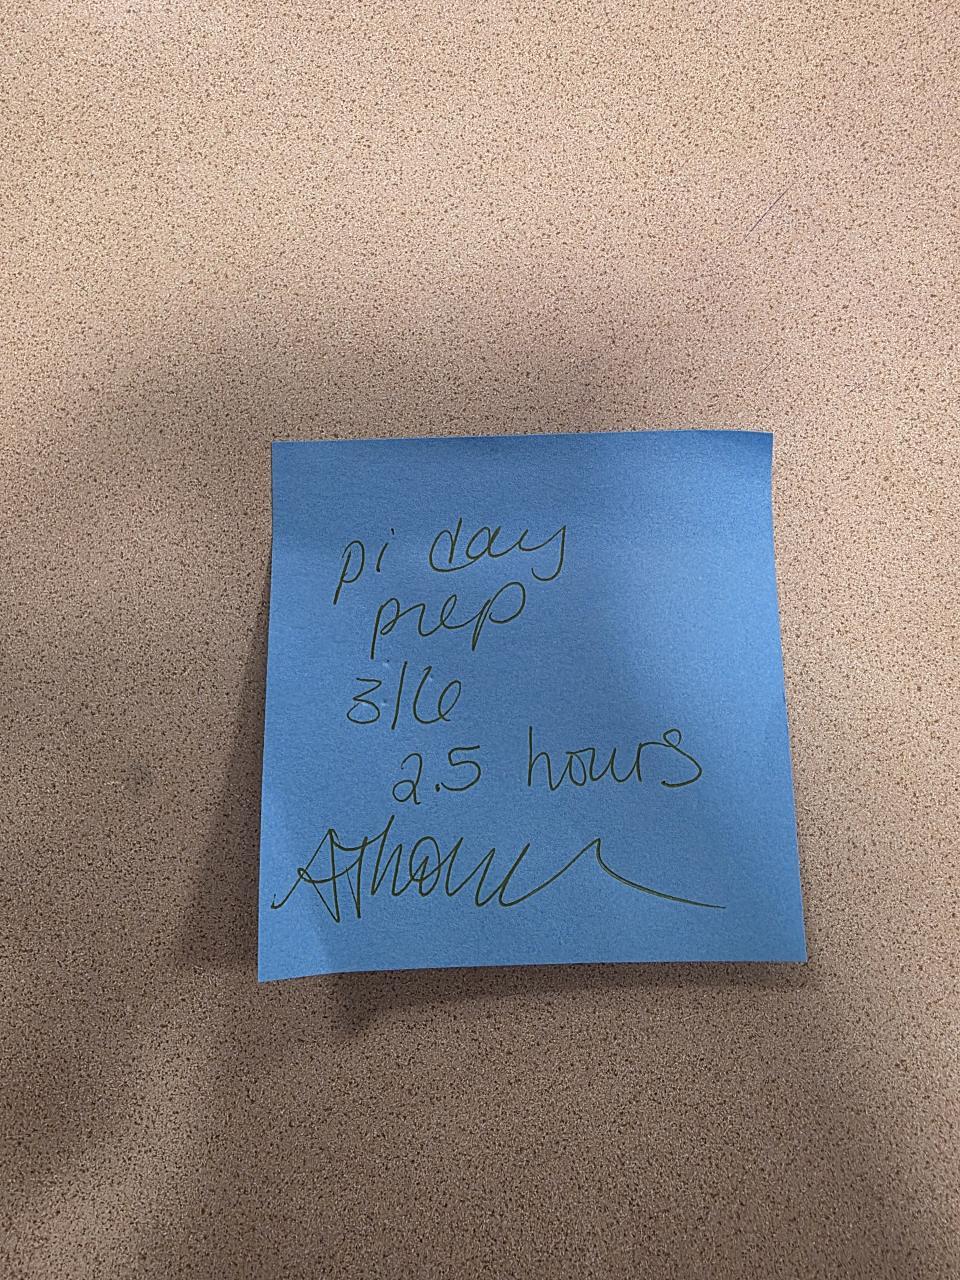 pi day
prep
3/6
2.5 hours